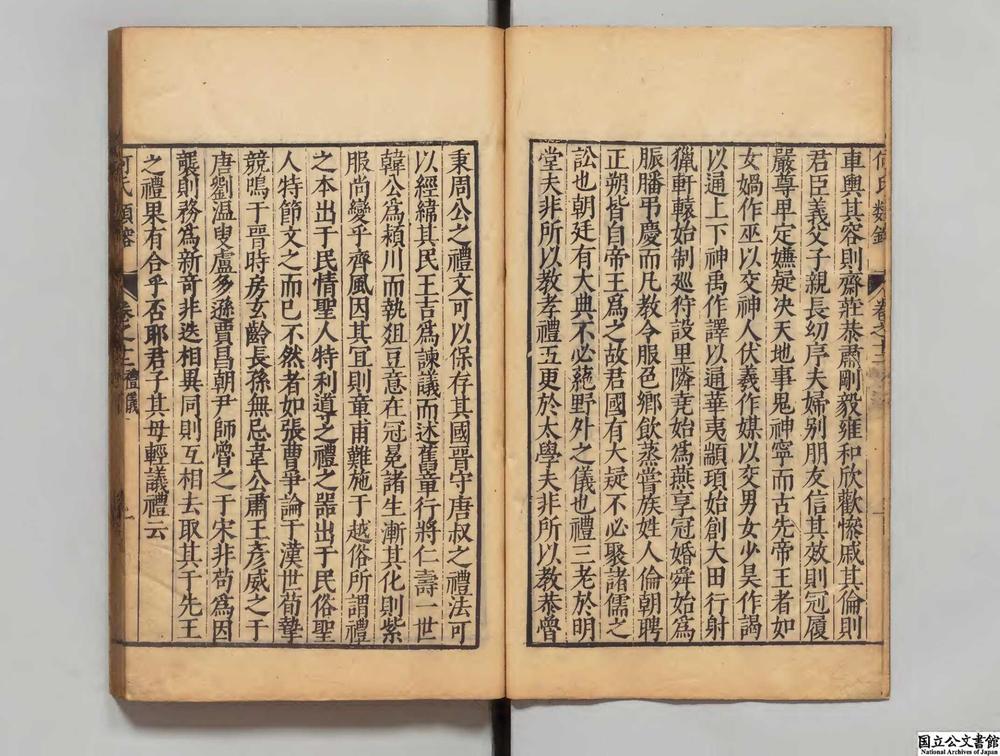 車輿其容則齋莊恭肅剛毅雍和欣歡慘戚其倫則
君臣義父子親長幼序夫婦别朋友信其效則冠履
嚴尊卑定嫌疑决天地事鬼神寧而古先帝王者如
女媧作巫以交神人伏羲作媒以交男女少昊作謁
以通上下神禹作譯以通華夷顓頊始創大田行射
獵軒轅始制廵狩設里隣堯始爲燕享冠婚舜始爲
脤膰弔慶而凡教令服色鄉飲蒸嘗族姓人倫朝聘
正朔皆自帝王爲之故君國有大疑不必聚諸儒之
訟也朝廷有大典不必蕝野外之儀也禮三老於明
堂夫非所以教孝禮五更於太學夫非所以教恭魯
秉周公之禮文可以保存其國晋守唐叔之禮法可
以經緯其民王吉爲諫議而述舊章行將仁壽一世
韓公爲潁川而執俎豆意在冠冕諸生漸其化則紫
服尚變乎齊風因其宜則章甫難施于越俗所謂禮
之本出于民情聖人特利導之禮之器出于民俗聖
人特節文之而已不然者如張曹爭論于漢世荀摯
競鳴于晋時房玄齡長孫無忌韋公肅王彦威之于
唐劉溫叟盧多遜賈昌朝尹師魯之于宋非苟爲因
襲則務爲新竒非迭相異同則互相去取其于先王
之禮果有合乎否耶君子其毋輕議禮云
何氏類鎔 卷之十二 禮儀
国立公文書館
National Archives of Japan